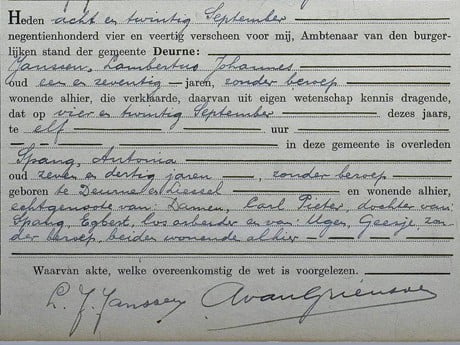 Heden acht en twintig September
negentienhonderd vier en veertig verscheen voor mij, Ambtenaar van den burger-
lijken stand der gemeente Deurne:
Janssen, Lambertus Johannes
oud een en zeventig jaren, zonder beroep
wonende alhier, die verklaarde, daarvan uit eigen wetenschap kennis dragende,
dat op vier en twintig September dezes jaars,
te elf uur
in deze gemeente is overleden
Spang, Antonia
oud zeven en dertig jaren, zonder beroep
geboren te Deurne en Liessel en wonende alhier,
echtgenoote van: Damen, Carl Pieter, dochter van:
Spang, Egbert, los arbeider en van: Uges, Geesje, zon-
der beroep, beiden wonende alhier
Waarvan akte, welke overeenkomstig de wet is voorgelezen.
L. J. Janssen